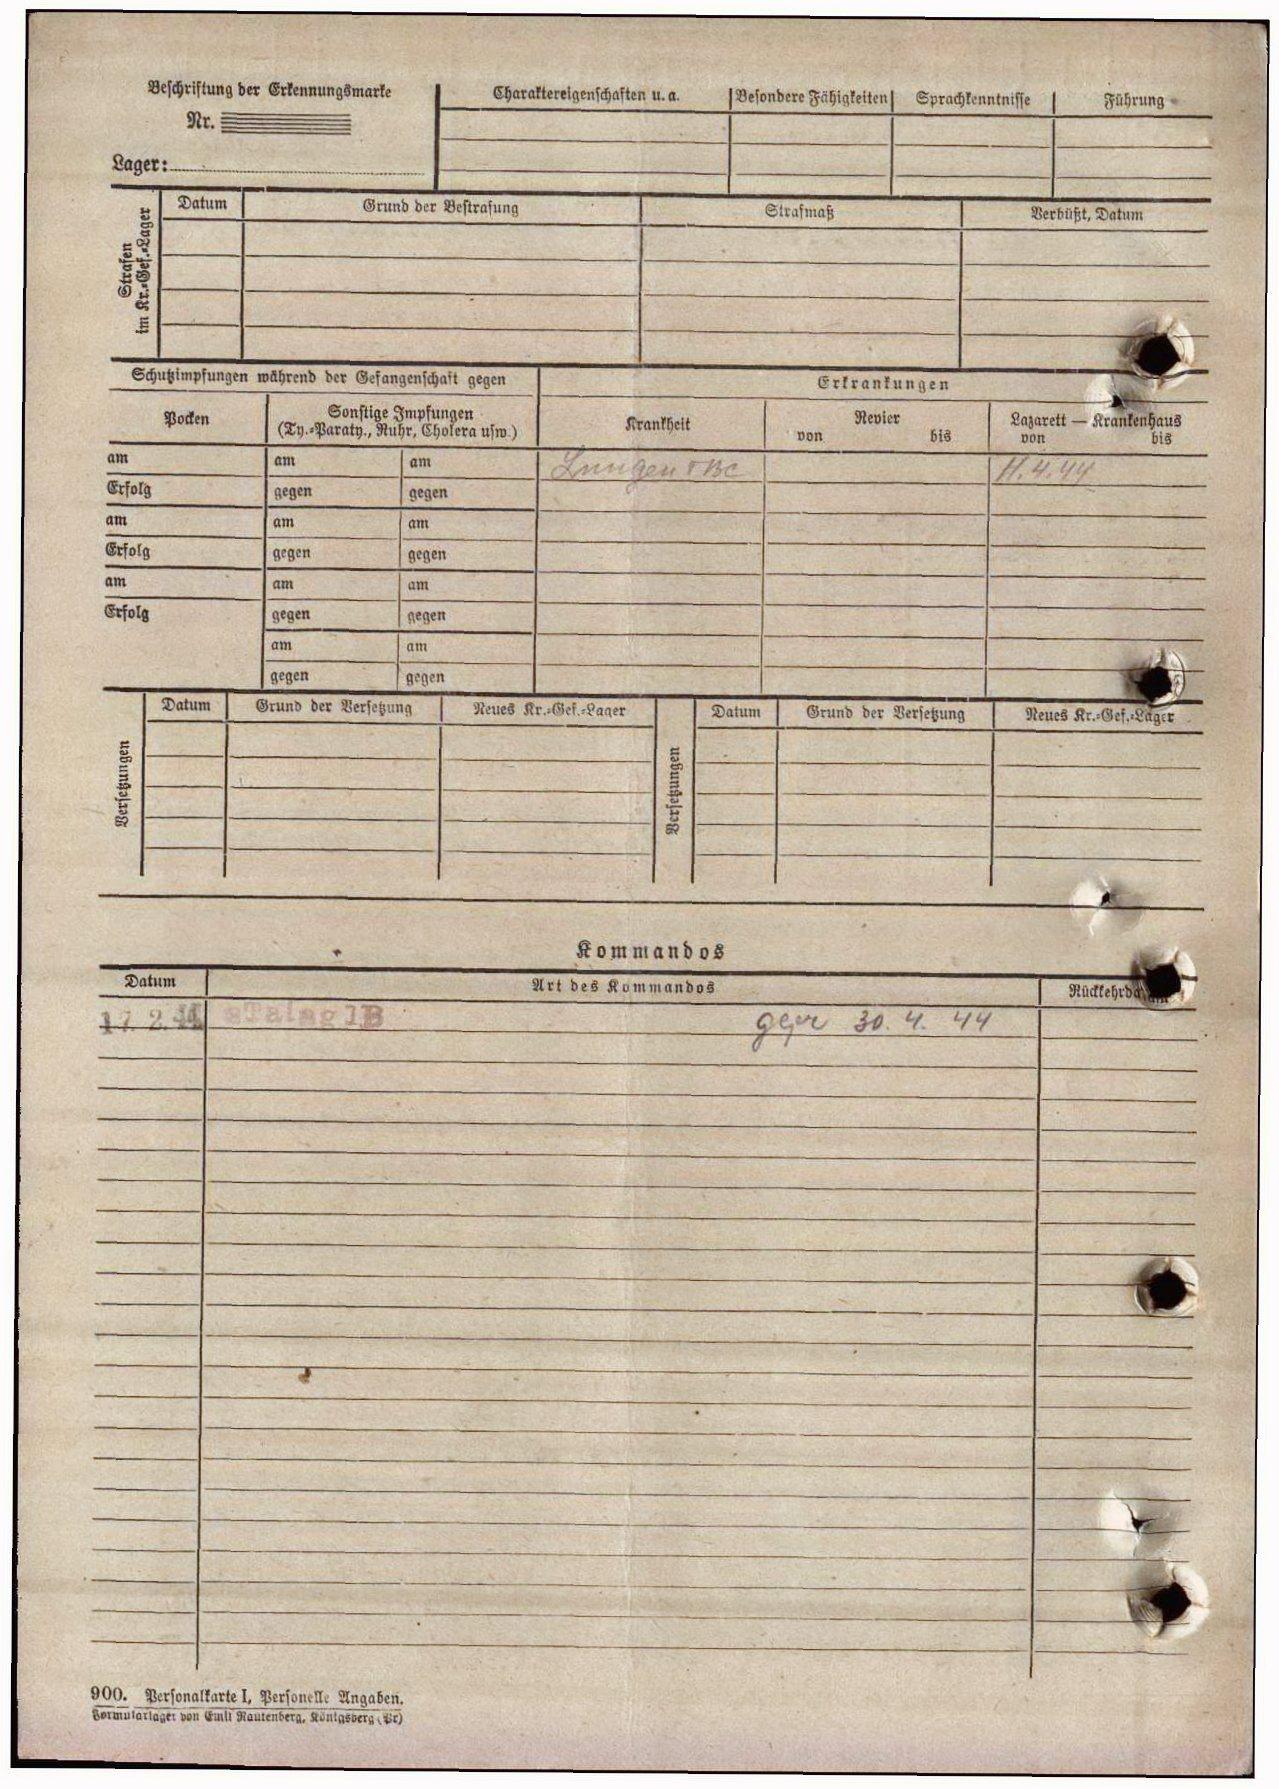 Beschriftung der Erkennungsmarke
Nr.
Lager:
Charaktereigenschaften u. a. Besondere Fähigkeiten Sprachkenntnisse Führung
Strafen im Kr.=Gef.=Lager
Datum Grund der Bestrafung Strafmaß Verbüßt, Datum
Schutzimpfungen während der Gefangenschaft gegen Erkrankungen
Pocken Sonstige Impfungen Krankheit Revier Lazarett — Krankenhaus
(Ty.=Paraty., Ruhr, Cholera usw.) von bis von bis
am am am Lungen TBC 11.4.44
Erfolg gegen gegen
am am am
Erfolg gegen gegen
am am am
Erfolg gegen gegen
am am
gegen gegen
Versetzungen Datum Grund der Versetzung Neues Kr.=Gef.=Lager Versetzungen Datum Grund der Versetzung Neues Kr.=Gef.=Lager
Kommandos
Datum Art des Kommandos Rückkehrdatum
17. 2. 44 sTalag 1B 30. 4. 44
900. Personalkarte I, Personelle Angaben.
Formularlager von Emil Rautenberg, Königsberg (Pr)